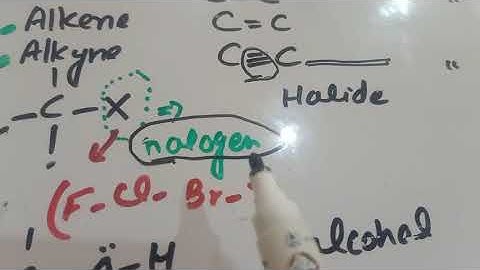 Alkene C=C
Alkyne C≡C "
Halide
-C-X ⇒
halogen
(F-Cl-Br-
Ä-H lcohol